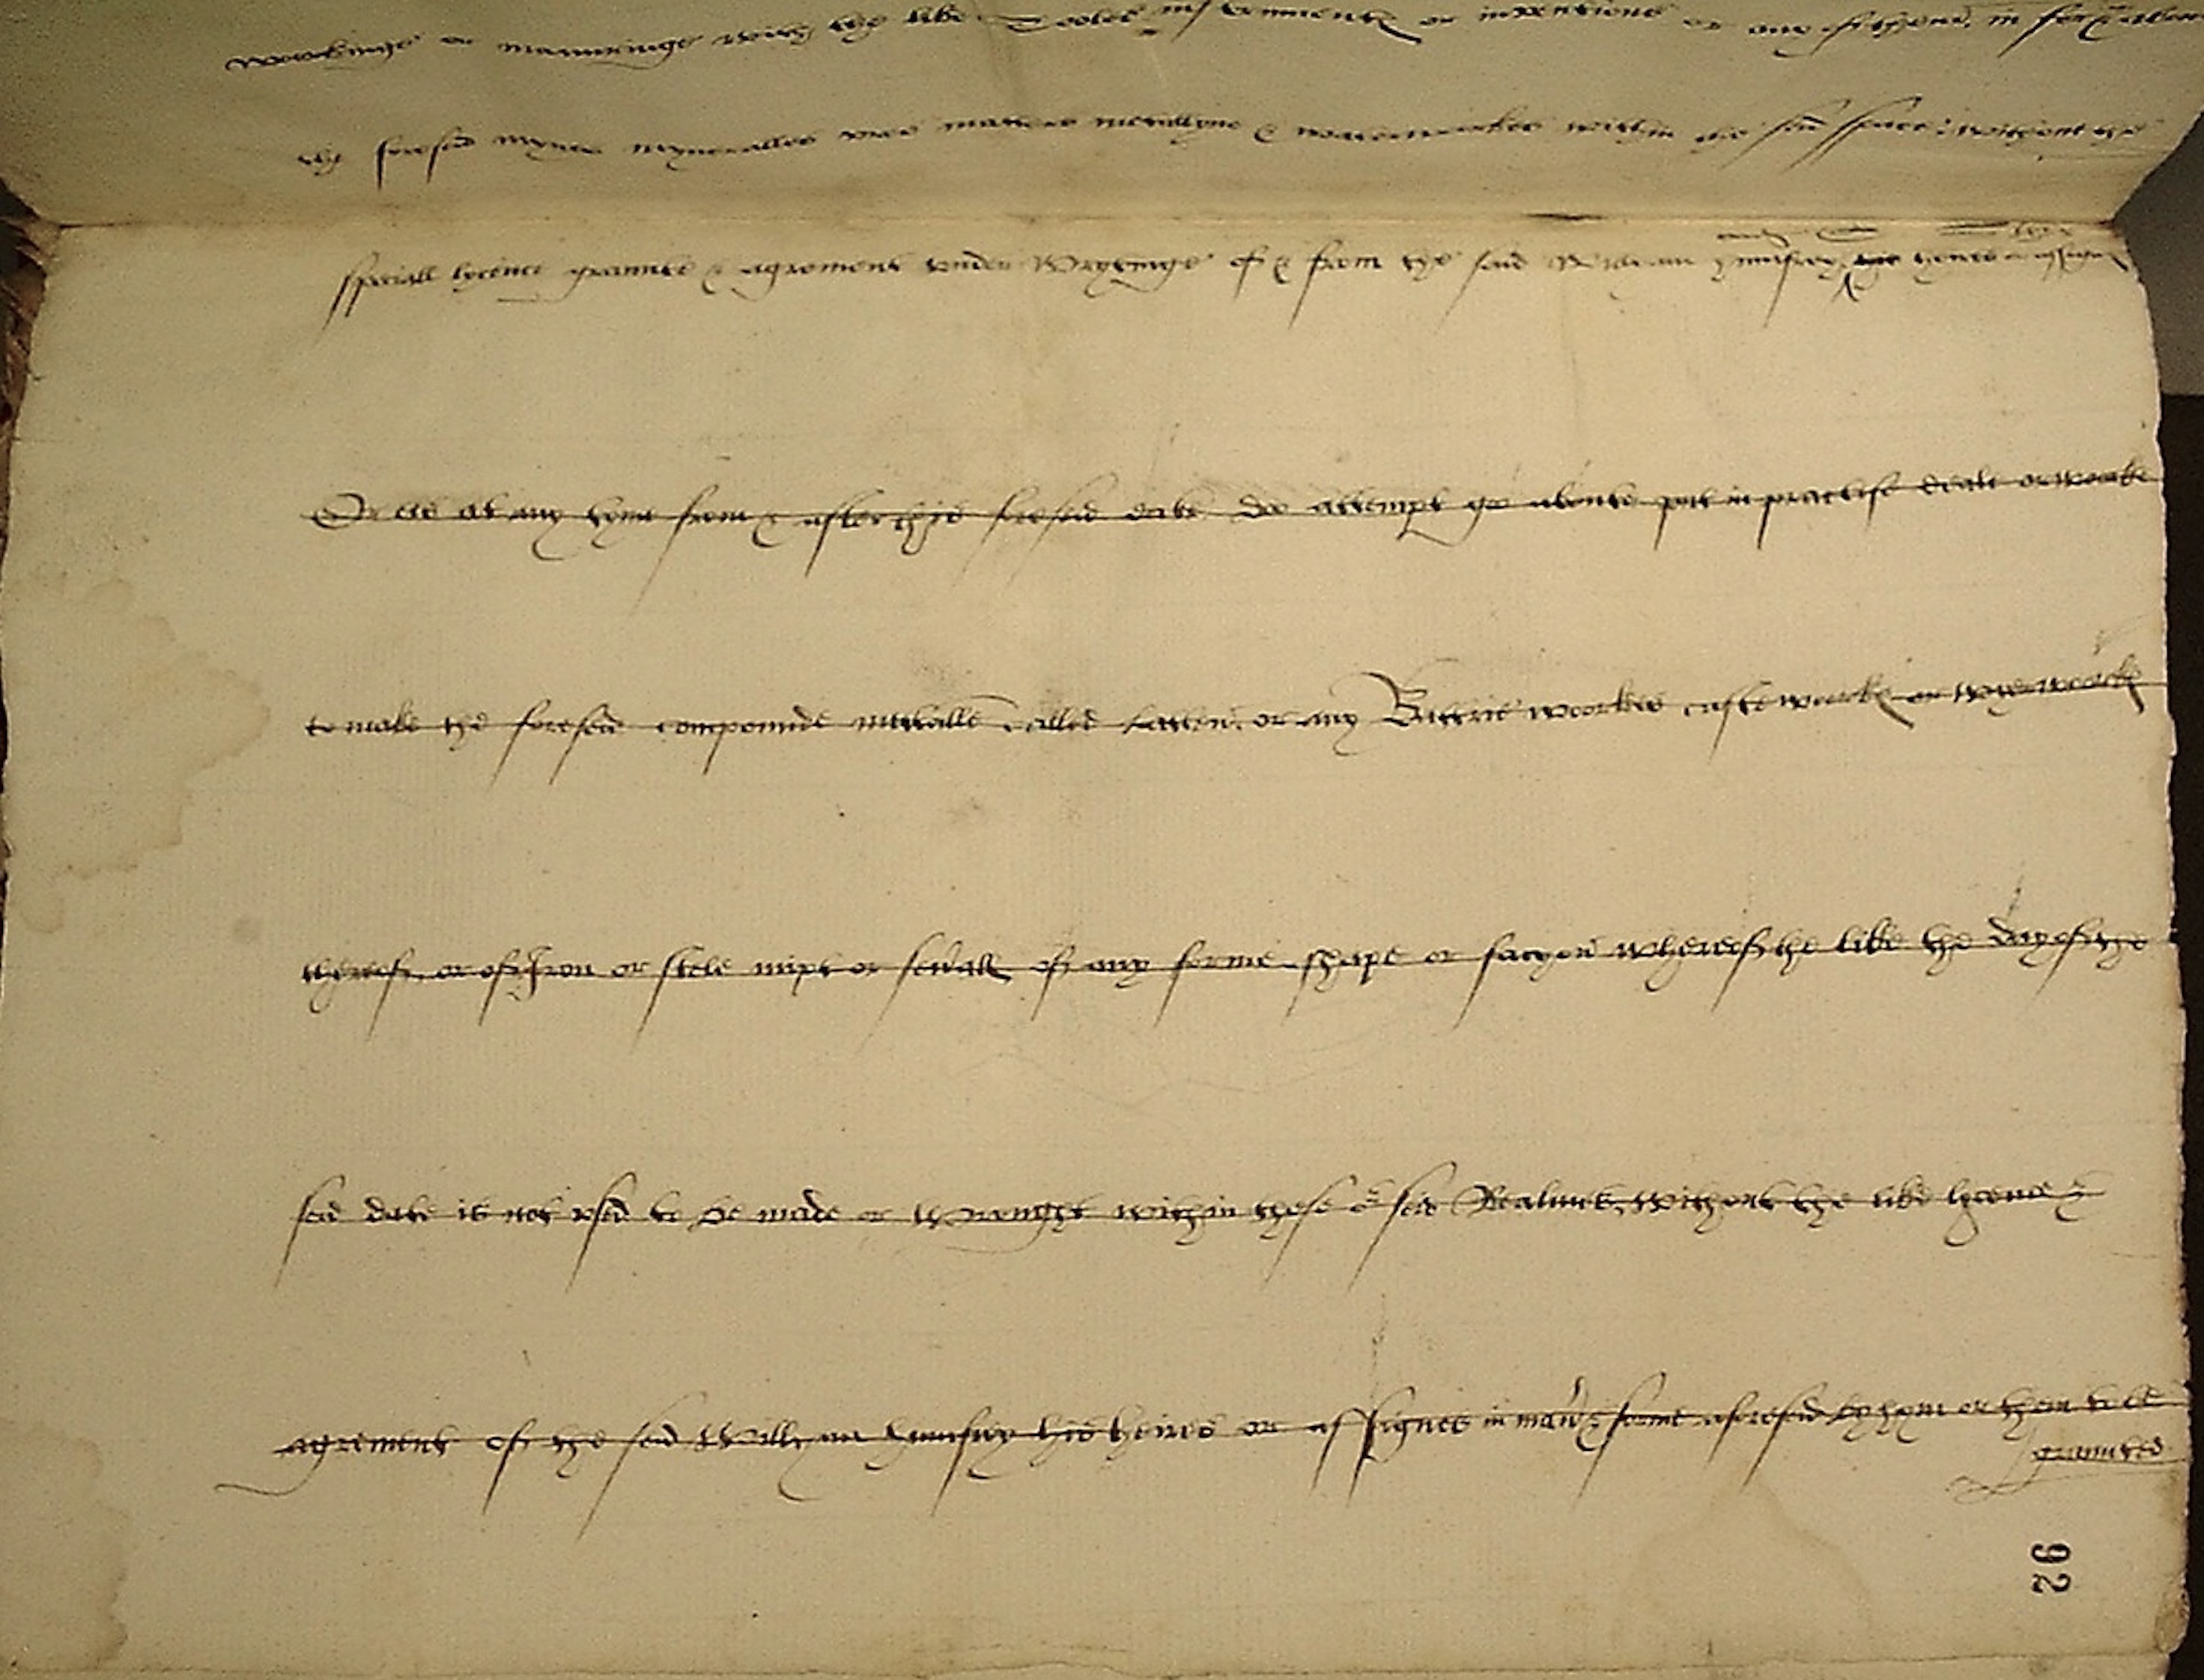 workinge or manuringe with the like Tooles instrumentes or inventions or any of them, in
the foresed mynes myneralles ures matters metallyne & waterworkes within the sed space: without the
speciall lycence graunte & agrement under Wrytinge of & from the said William Humfrey heires assignes
Or els at any tyme from & after the foresed date do attempt go aboute put in practise deale or worke
to make the foresed compounde metalle called Latten, or any Battrie workes caste worke or wyer worke
therof, or of Iron or stele mixt or severall of any forme shape or facyon wherof the like the day of the
sed date is not used to be made or Wrought within these or sed Realmes, without the like lycence &
agrement of the sed Willyam humfrey his heires or assignes in manner & forme aforesed by hym or them to be
graunted
92